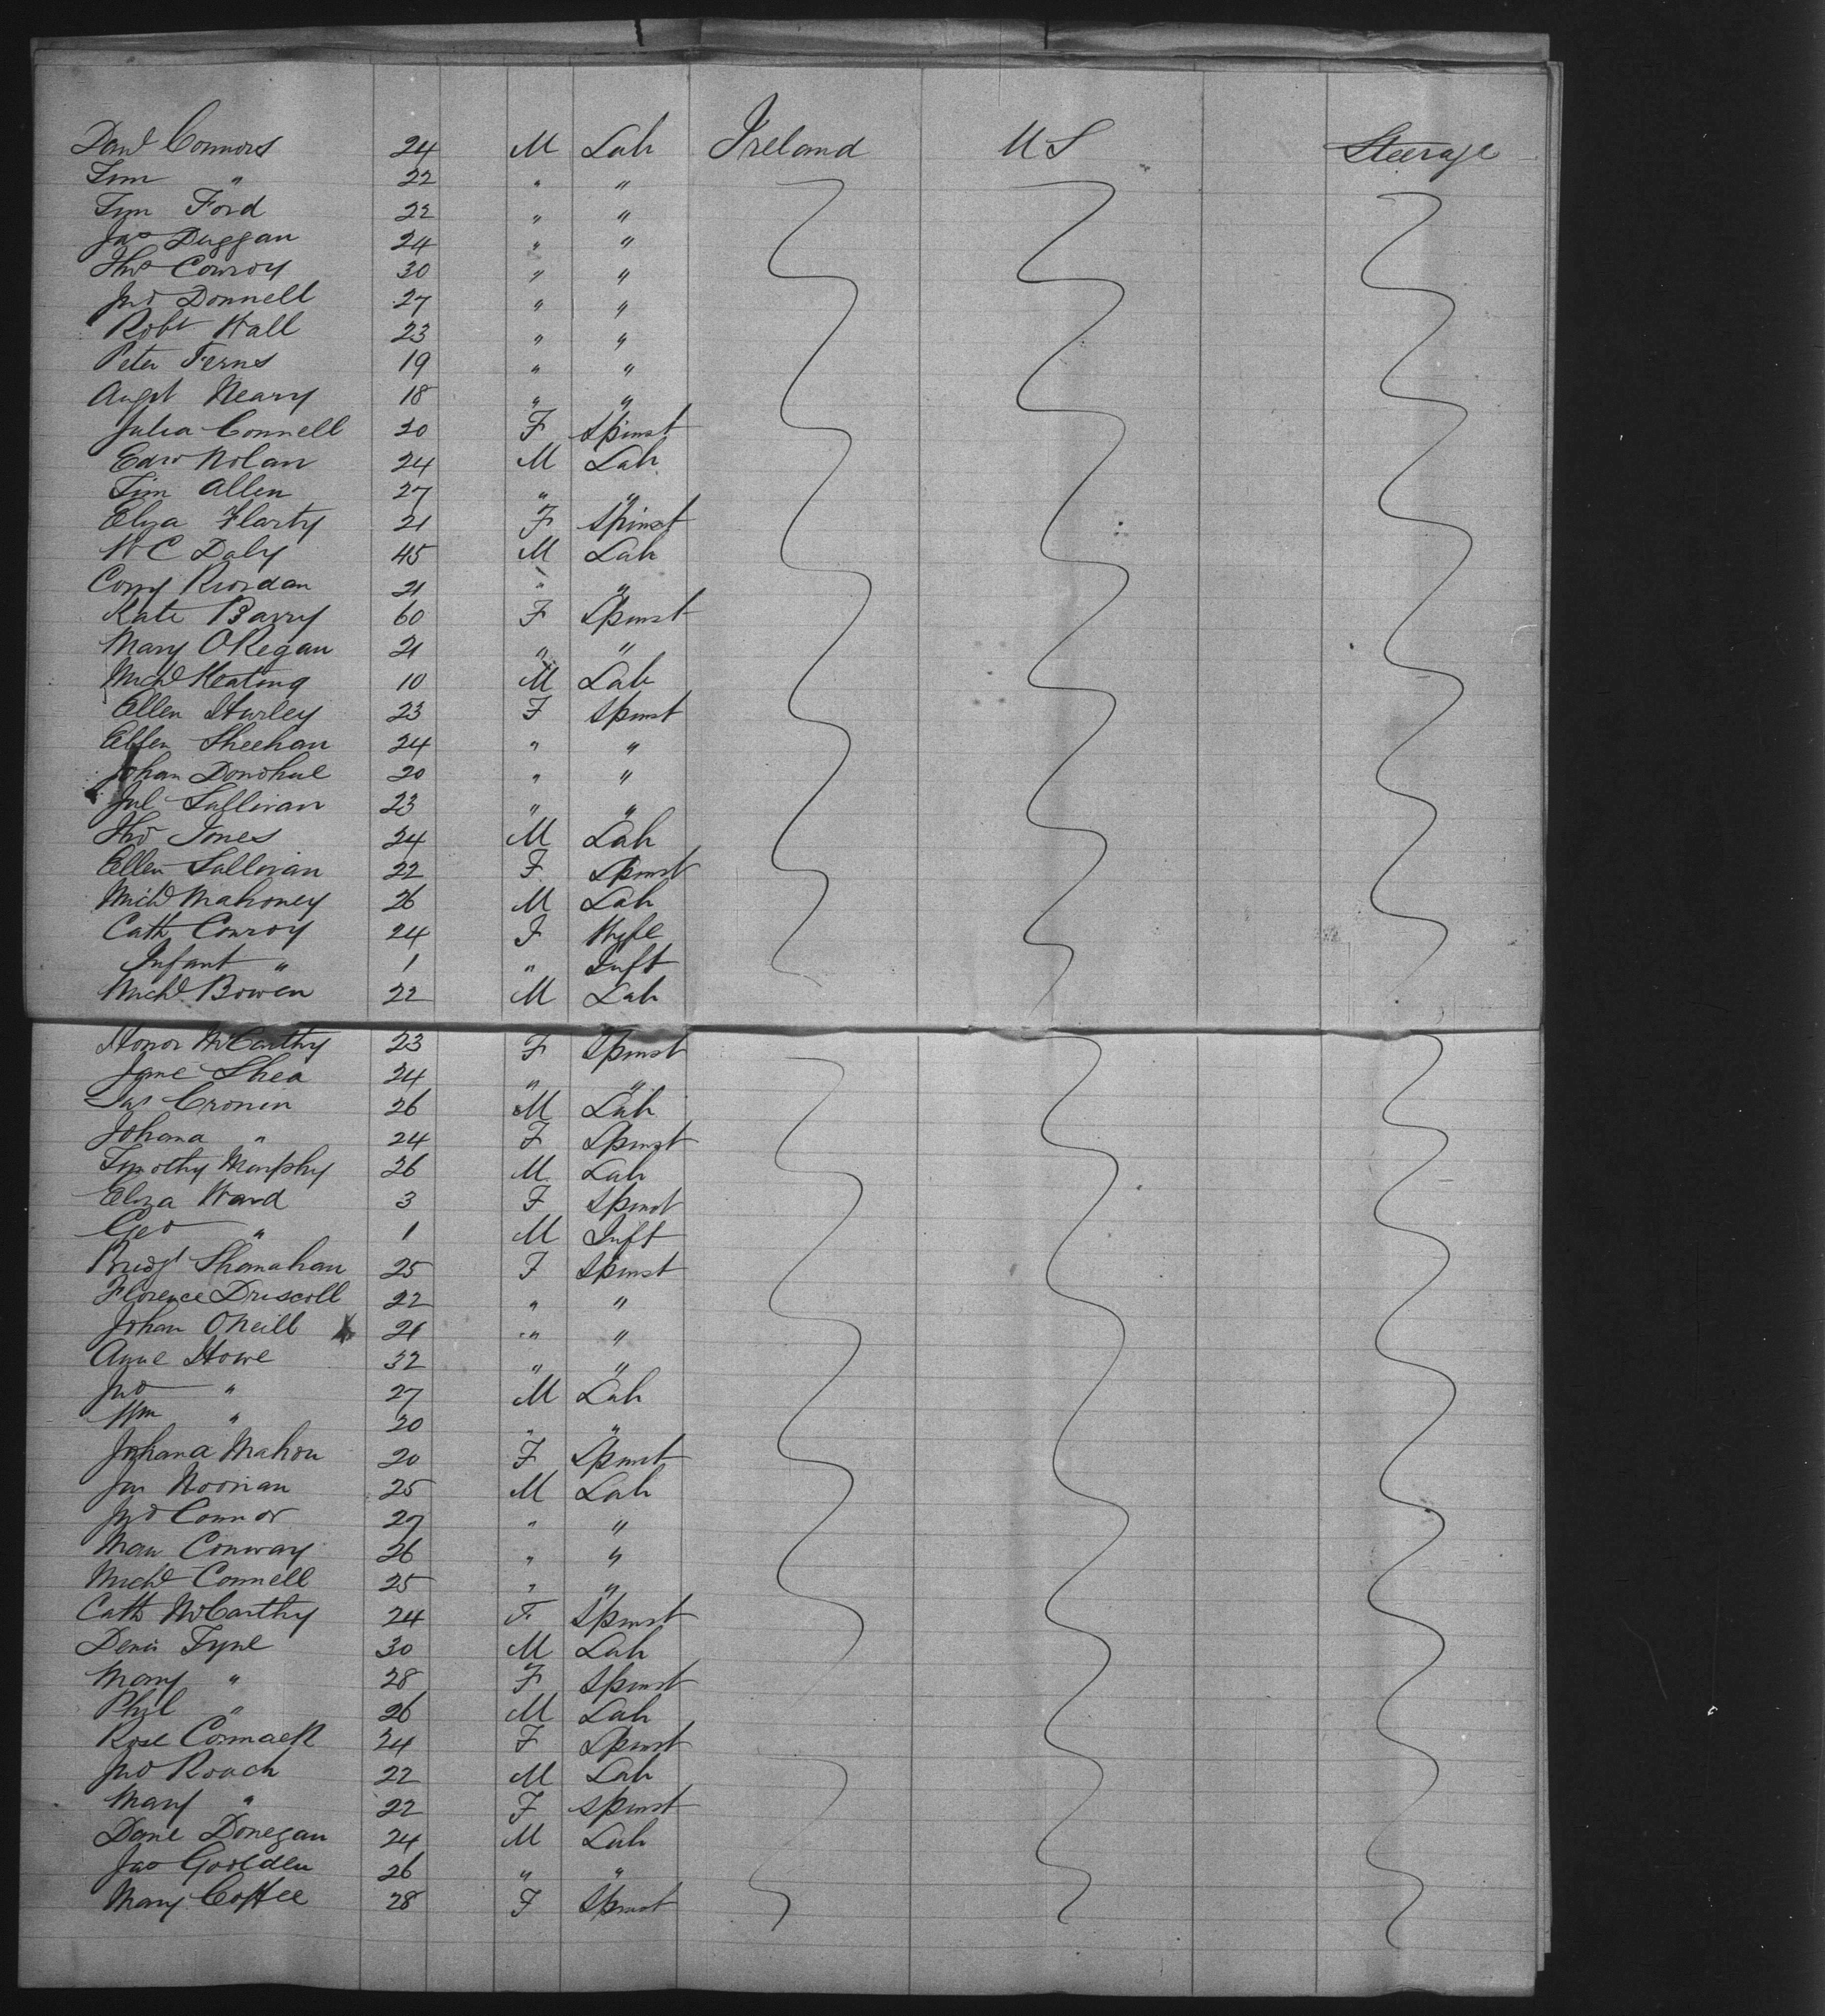 Danl Connors 24 M Lab Ireland U S Steerage
Tim " 22 " "
Tim Ford 22 " "
Jas Duggan 24 " "
Thos Conroy 30 " "
Jno Donnell 27 " "
Robt Wall 23 " "
Peter Ferns 19 " "
Augt Neary 18 " "
Julia Connell 20 F Spinst
Edw Nolan 24 M Lab
Tim Allen 27 " "
Eliza Flarty 21 F Spinst
W C Daly 45 M Lab
Corny Riordan 21 " "
Kate Barry 60 F Spinst
Mary O'Regan 21 " "
Michl Keating 10 M Lab
Ellen Hurley 23 F Spinst
Ellen Sheehan 24 " "
Johan Donohue 20 " "
Jul Sullivan 23 " "
Tho Jones 24 M Lab
Ellen Sullivan 22 F Spinst
Michl Mahoney 26 M Lab
Cath Conroy 24 F Wife
Infant " 1 " Inft
Michl Bowen 22 M Lab
Honor McCarthy 23 F Spinst
Jane Shea 24 " "
Jas Cronin 26 M Lab
Johana " 24 F Spinst
Timothy Murphy 26 M Lab
Eliza Ward 3 F Spinst
Geo " 1 M Inft
Bridgt Shanahan 25 F Spinst
Florence Driscoll 22 " "
Johan ONeill 21 " "
Anne Howe 32 " "
Jno " 27 M Lab
Wm " 20 " "
Johana Mahon 20 F Spinst
Jas Noonan 25 M Lab
Jno Connor 27 " "
Mau Conway 26 " "
Michl Connell 25 " "
Cath McCarthy 24 F Spinst
Denis Tyne 30 M Lab
Mary " 28 F Spinst
Phil " 26 M Lab
Rose Cormack 24 F Spinst
Jno Roach 22 M Lab
Mary " 22 F Spinst
Danl Donegan 24 M Lab
Jas Goolden 26 " "
Mary Coffee 28 F Spinst